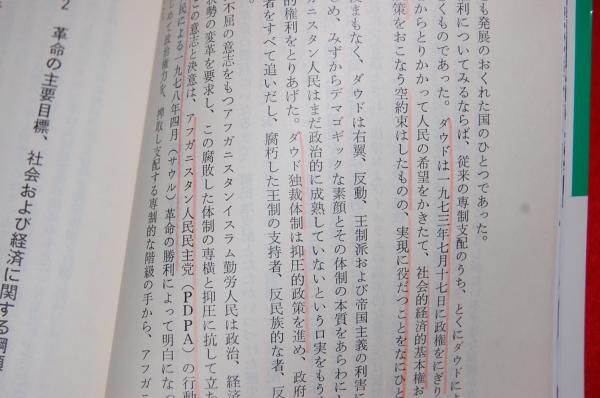 も発展のおくれた国のひとつであった。
利についてみるならば、従来の専制支配のうち、とくにダウドによ
くものであった。ダウドは一九七三年七月十七日に政権をにぎり
からとりかかって人民の希望をかきたて、社会的経済的基本権お
策をおこなう空約束はしたものの、実現に役だつことをなにひと
まもなく、ダウドは右翼、反動、王制派および帝国主義の利害に
め、みずからデマゴギックな素顔とその体制の本質をあらわに
ガニスタン人民はまだ政治的に成熟していないという口実をもう
的権利をとりあげた。ダウド独裁体制は抑圧的政策を進め、政府
者をすべて追いだし、腐朽した王制の支持者、反民族的な者、反
不屈の意志をもつアフガニスタンイスラム勤労人民は政治、経済
状勢の変革を要求し、この腐敗した体制の専横と抑圧に抗して立ち
この意志と決意は、アフガニスタン人民民主党(PDPA)の行動
民による一九七八年四月(サウル)革命の勝利によって明白になっ
政治権力を、搾取し支配する専制的な階級の手から、アフガニ
2 革命の主要目標、社会および経済に関する綱領